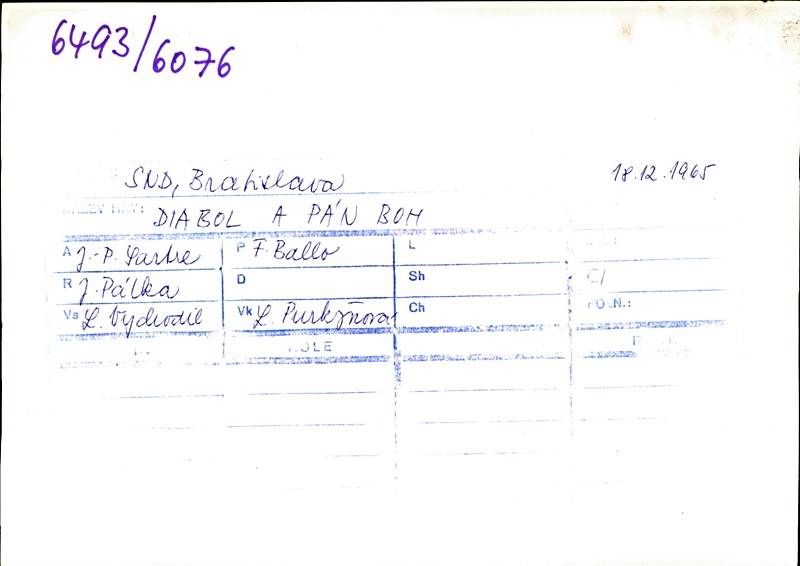 6493/6076
SND, Bratislava 18.12.1965
DIABOL A PÁN BOH
A J.-P. Sartre P F. Ballo L
R J. Pálka D Sh
Vs L. Vychodil Vk L. Purkyňová Ch